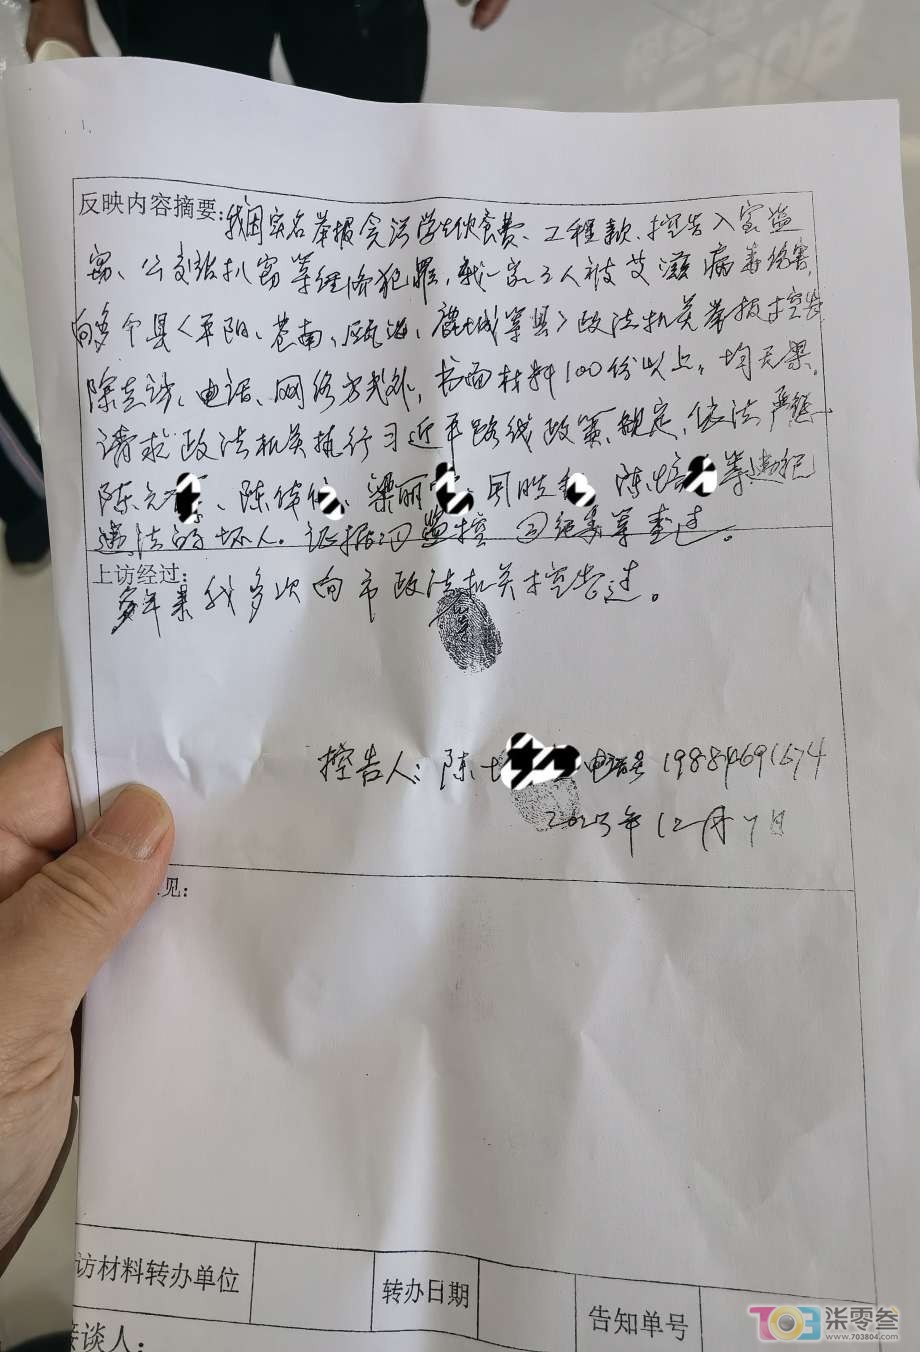 反映内容摘要：我因实名举报贪污学生伙食费、工程款、控告入室盗
窃、公交站扒窃等经济犯罪，我一家三人被艾滋病毒伤害，
向多个县（平阳、苍南、瓯海、鹿城等县）政法机关举报控告
除走访、电话、网络方式外，书面材料100份以上，均无果。
请求政法机关执行习近平路线政策、规定，依法严惩
陈元、陈伟、梁丽、周胜、陈培等违纪
违法的坏人。证据监控
上访经过：
多年来我多次向市政法机关控告过。
控告人：陈 电话号
2023年12月7日
见：
访材料转办单位
转办日期
告知单号
接谈人：
703 柒零叁
www.703804.com